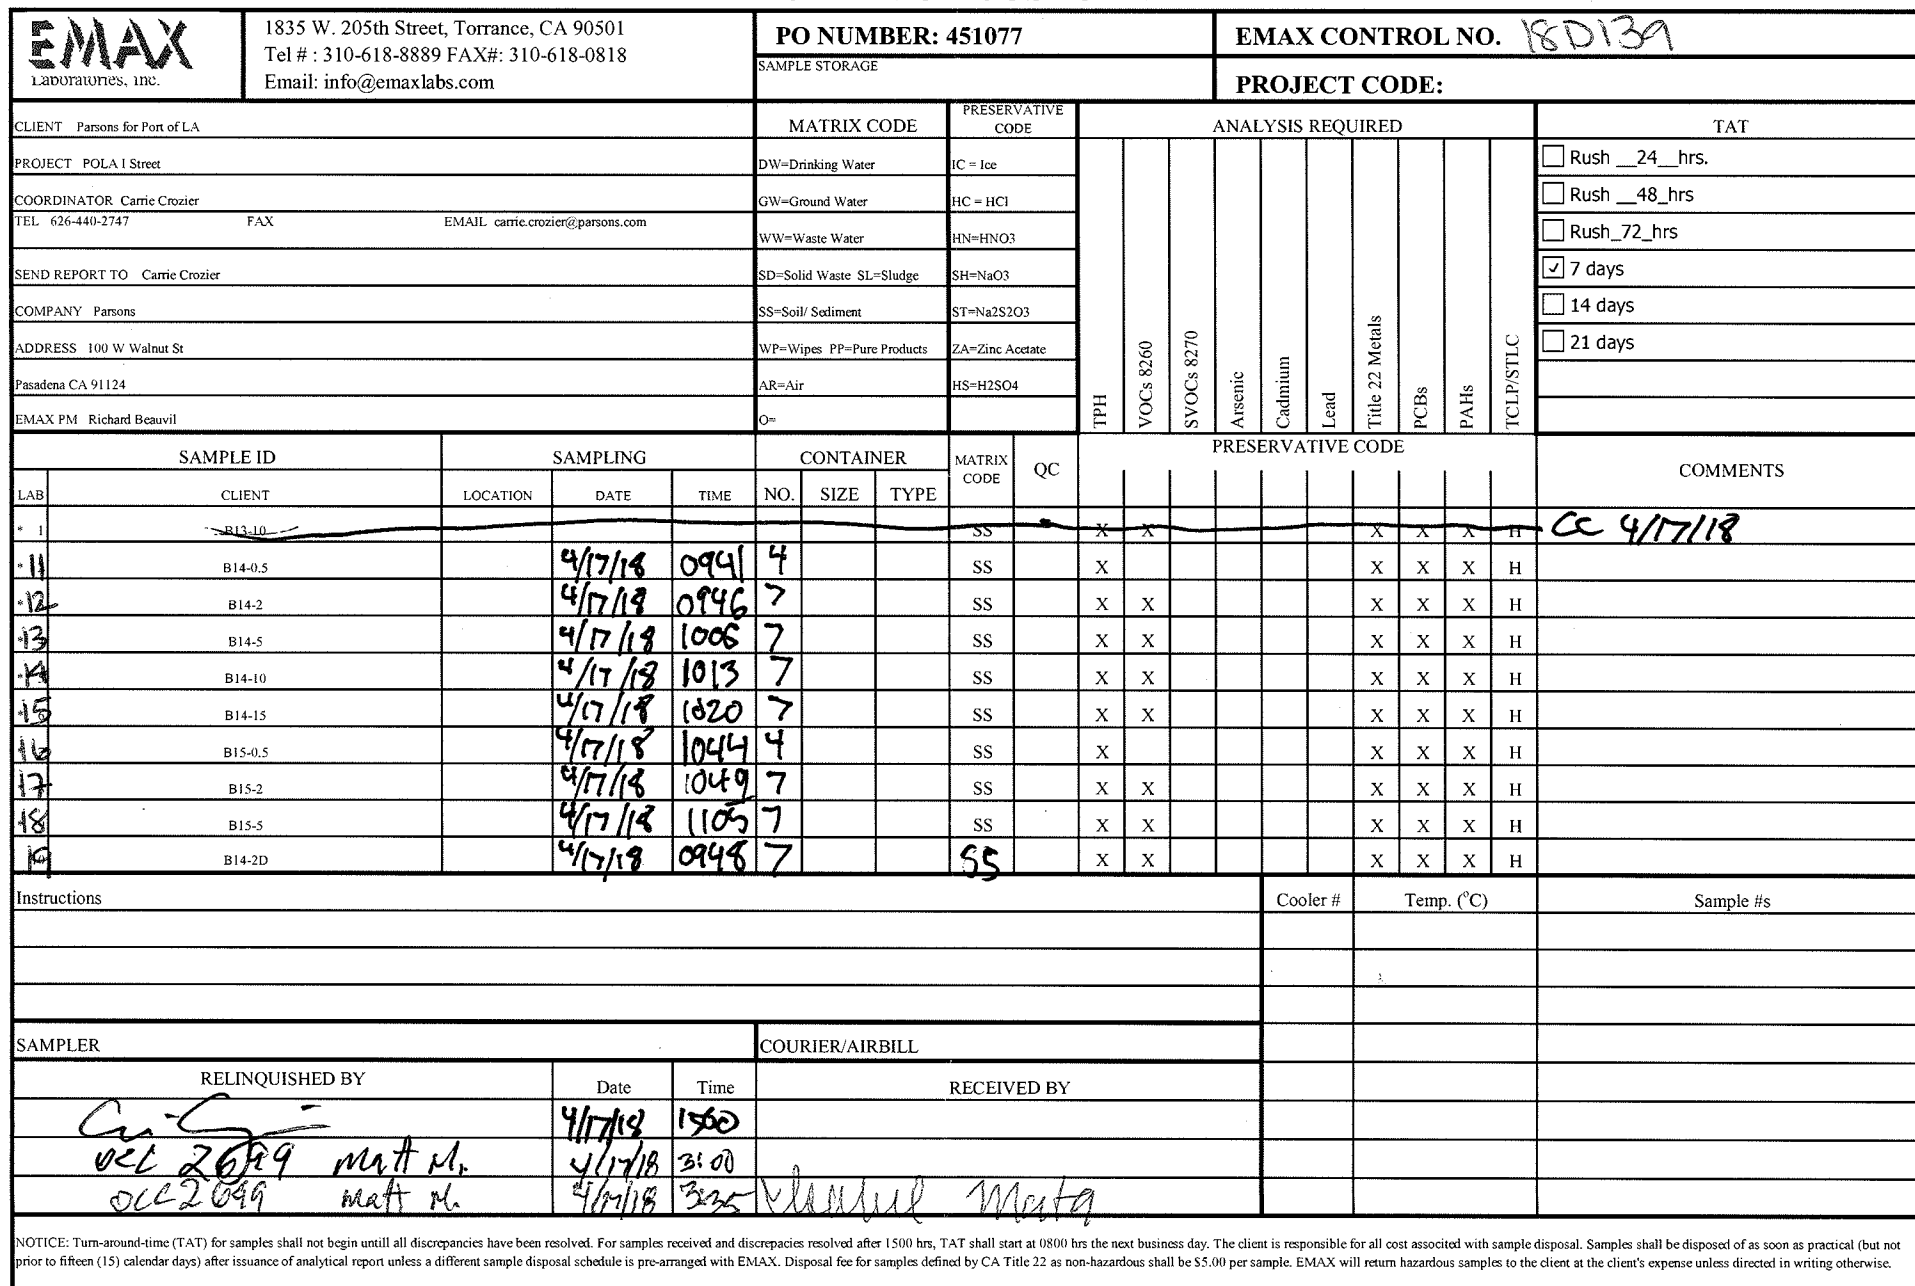 EMAX
Laboratories, Inc.
1835 W. 205th Street, Torrance, CA 90501
Tel # : 310-618-8889 FAX#: 310-618-0818
Email: info@emaxlabs.com
PO NUMBER: 451077
SAMPLE STORAGE
EMAX CONTROL NO. 18D139
PROJECT CODE:
CLIENT Parsons for Port of LA
PROJECT POLA I Street
COORDINATOR Carrie Crozier
TEL 626-440-2747 FAX EMAIL carrie.crozier@parsons.com
SEND REPORT TO Carrie Crozier
COMPANY Parsons
ADDRESS 100 W Walnut St
Pasadena CA 91124
EMAX PM Richard Beauvil
MATRIX CODE
DW=Drinking Water
GW=Ground Water
WW=Waste Water
SD=Solid Waste SL=Sludge
SS=Soil/ Sediment
WP=Wipes PP=Pure Products
AR=Air
O=
PRESERVATIVE
CODE
IC = Ice
HC = HCl
HN=HNO3
SH=NaO3
ST=Na2S2O3
ZA=Zinc Acetate
HS=H2SO4
ANALYSIS REQUIRED
TPH
VOCs 8260
SVOCs 8270
Arsenic
Cadmium
Lead
Title 22 Metals
PCBs
PAHs
TCLP/STLC
TAT
Rush __24__hrs.
Rush __48_hrs
Rush_72_hrs
✓ 7 days
14 days
21 days
SAMPLE ID SAMPLING CONTAINER MATRIX CODE QC PRESERVATIVE CODE COMMENTS
LAB CLIENT LOCATION DATE TIME NO. SIZE TYPE
* 1 B13-10 SS X X X X X H CC 4/17/18
*11 B14-0.5 4/17/18 0941 4 SS X X X X H
*12 B14-2 4/17/18 0946 7 SS X X X X X H
*13 B14-5 4/17/18 1006 7 SS X X X X X H
*14 B14-10 4/17/18 1013 7 SS X X X X X H
*15 B14-15 4/17/18 1020 7 SS X X X X X H
16 B15-0.5 4/17/18 1044 4 SS X X X X H
17 B15-2 4/17/18 1049 7 SS X X X X X H
18 B15-5 4/17/18 1105 7 SS X X X X X H
19 B14-2D 4/17/18 0948 7 SS X X X X X H
Instructions
Cooler # Temp. (°C) Sample #s
SAMPLER COURIER/AIRBILL
RELINQUISHED BY Date Time RECEIVED BY
4/17/18 1500
2699 Matt M. 4/17/18 3:00
OCC2699 Matt M. 4/17/18 3:35 Mata
NOTICE: Turn-around-time (TAT) for samples shall not begin untill all discrepancies have been resolved. For samples received and discrepacies resolved after 1500 hrs, TAT shall start at 0800 hrs the next business day. The client is responsible for all cost associted with sample disposal. Samples shall be disposed of as soon as practical (but not
prior to fifteen (15) calendar days) after issuance of analytical report unless a different sample disposal schedule is pre-arranged with EMAX. Disposal fee for samples defined by CA Title 22 as non-hazardous shall be $5.00 per sample. EMAX will return hazardous samples to the client at the client's expense unless directed in writing otherwise.